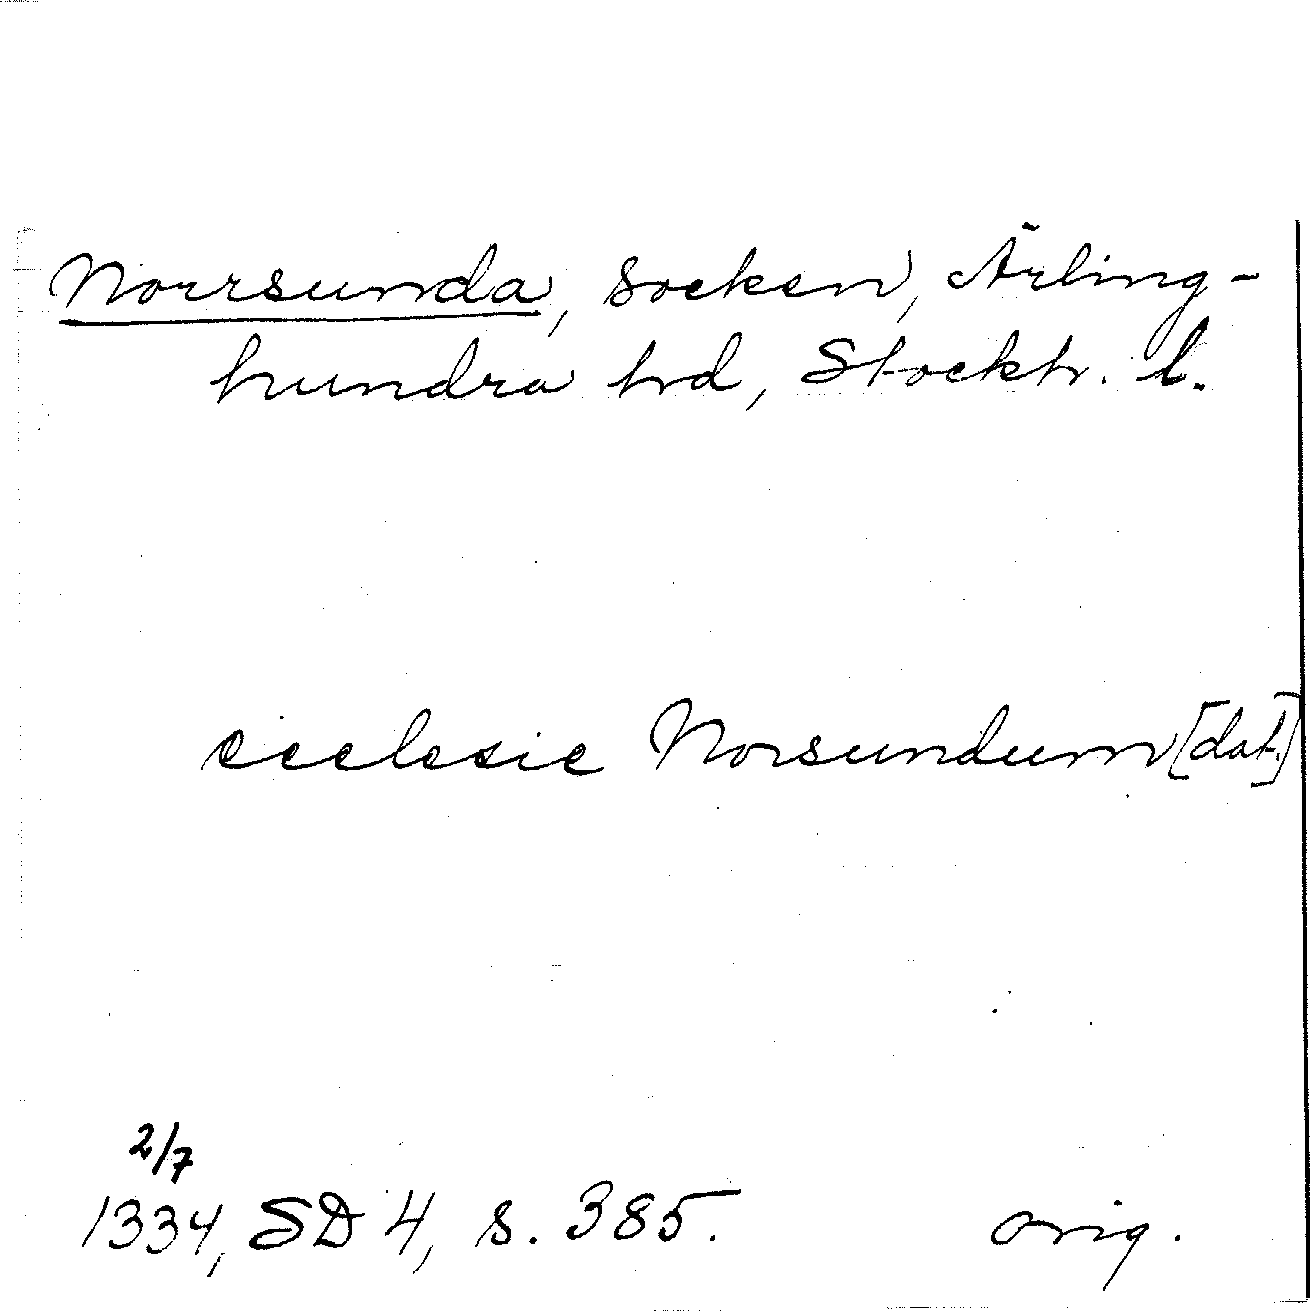 Norrsunda, socken, Ärling-
hundra hd, Stockh. l.
ecclesie Norsundum [dat.]
2/7
1334, SD 4, s. 385.
orig.